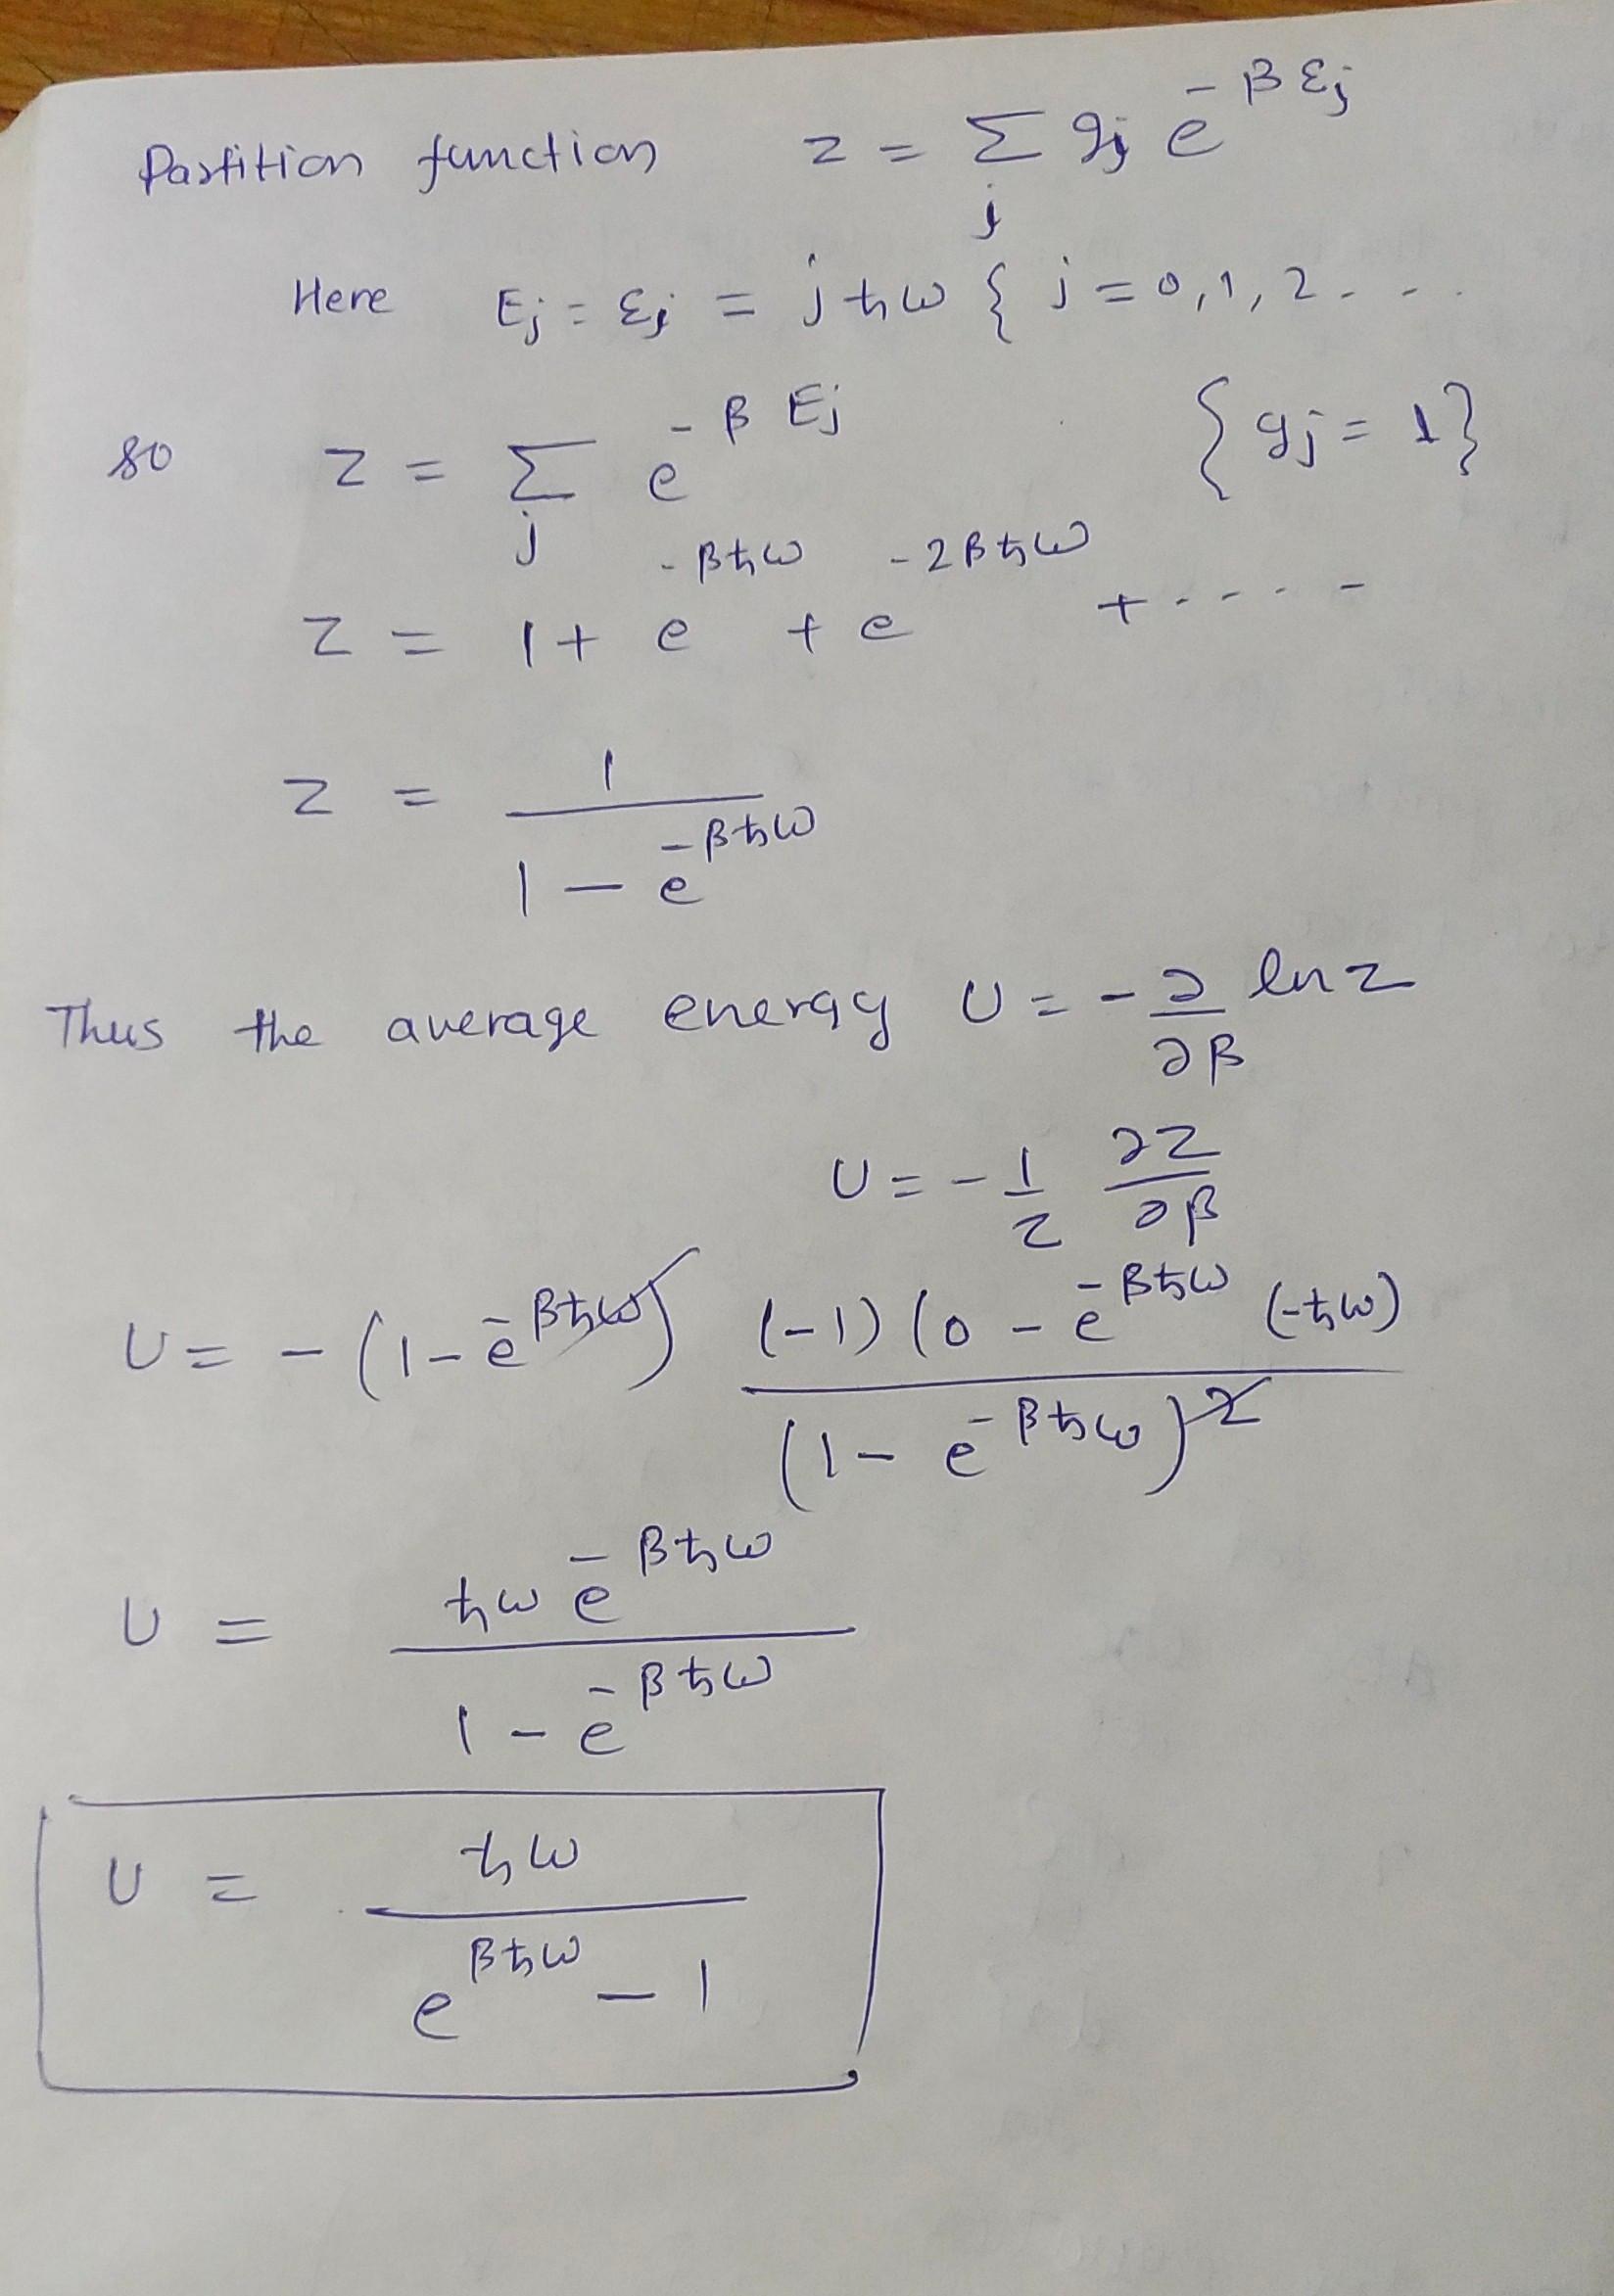 Partition function z = Σ_j g_j e^{-βε_j}
Here E_j = ε_j = jħω { j = 0, 1, 2 - - -
so z = Σ_j e^{-βE_j} {g_j = 1}
z = 1 + e^{-βħω} + e^{-2βħω} + - - - - -
z = 1 / (1 - e^{-βħω})
Thus the average energy U = -∂/∂β ln z
U = -1/z ∂z/∂β
U = -(1 - e^{-βħω}) (-1)(0 - e^{-βħω} (-ħω) / (1 - e^{-βħω})^2
U = ħω e^{-βħω} / (1 - e^{-βħω})
U = ħω / (e^{βħω} - 1)